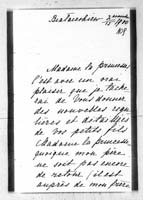 1900
Madame la princesse
C'est avec un vrai
plaisir que je tache
rai de Vous donner
des nouvelles régu
lières et détaillées
de vos petits fils
Madame la princesse,
quoique mon père
ne soit pas encore
de retour, il est
auprès de mon frère